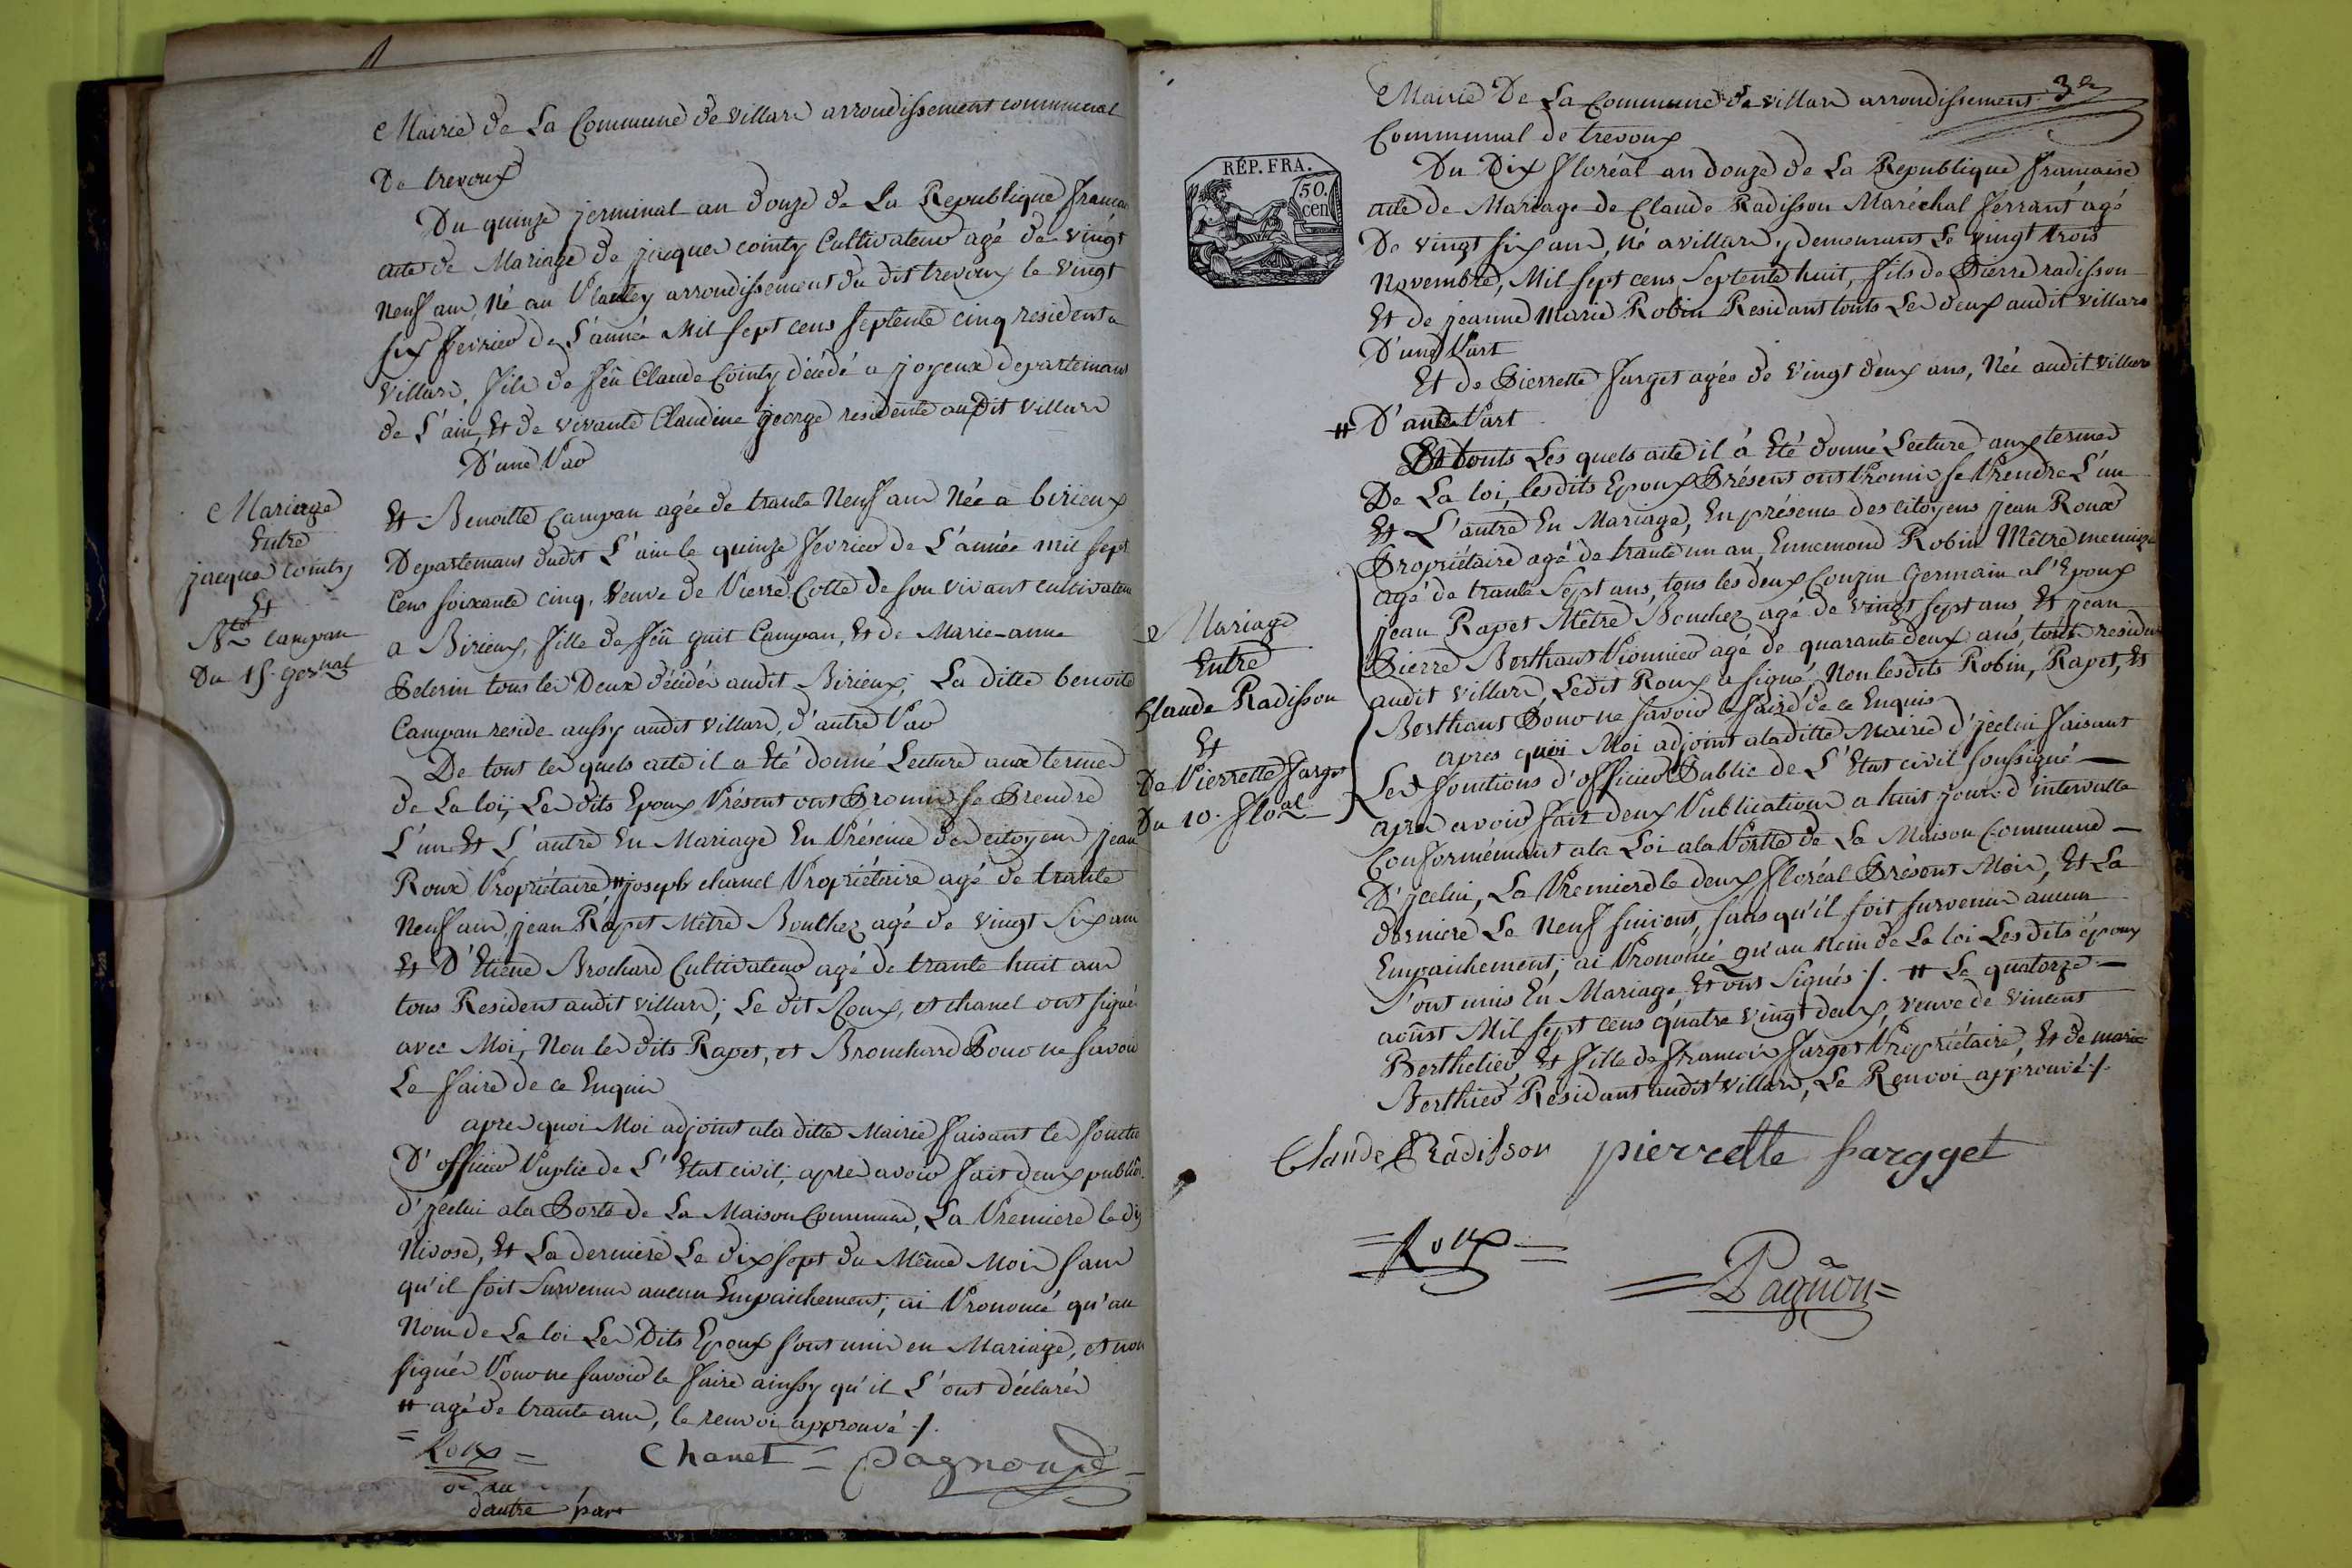 Mairie de La Commune de villars arrondissement communal
De trevoux
Du quinze jerminal an douze de La Republique francai
acte de Mariage de jacques cointy Cultivateur agé de vingt
neuf ans, Né au Plantey arrondissement du dit trevoux le vingt
six fevrier de L'année Mil sept cens septente cinq resident a
villars, fils de feû Claude Cointy décédé a joyeux departemans
de L'ain, Et de vivante Claudine george residente audit villars
D'une Par
Mariage
Entre
jacques Cointy
Et
Bte Campan
Du 15. gernal
Et Benoitte Campan agée de trante Neuf ans Née a birieux
Departemans dudit L'ain le quinze fevrier de L'année mil sept
Cens soixante cinq, veuve de Pierre Cotte de son vivant cultivateu
a Birieux, fille de feû guit Campan, Et de Marie-anne
Pelerin tous les Deux décédés audit Birieux; La ditte benoite
Campan reside aussy audit villars, d'autre Par
De tout les quels acte il a Eté donné Lecture aux termes
de La loi, Les dits Epoux Présent ont Promis se Prendre
L'un Et L'autre En Mariage En Présence des citoyens jean
Roux Propriétaire # joseph chanel Propriétaire agé de trante
neuf ans, jean Rapet Mêtre Bouchez agé de vingt six ans
Et D'Etiene Brochard Cultivateur agé de trante huit ans
tous Resident audit villars; Le dit Roux, et chanel ont signé
avec Moi, Non les dits Rapet, et Brouchard Pour ne savoir
Le faire de ce Enquis
apres quoi Moi adjoint ala ditte Mairie faisant les fonctio
D'officier Puplic de L'Etat civil; apres avoir fait deux public.
d'jcelui ala Porte de La Maison Commune, La Premiere le dix
Nivose, Et La derniere Le dix sept du Même Mois sans
qu'il soit Survenu aucun Empaichement; ai Prononcé qu'au
Nom de La loi Les Dits Epoux sont unis en Mariage, et non
signés Pour ne savoir le faire ainssy qu'il L'ont déclarés
# agé de trante ans, le renvoi approuvé ./.
= Roux =
Chanel = Pagnon pd
d'autre part
3e
Mairie De La Commune de villars arrondissement
Communal de trevoux
RÉP. FRA.
50.
cen
Du Dix floréal an douze de La Republique francaise
acte de Mariage de Claude Radisson Maréchal ferrant agé
De vingt six ans, Né a villars y demeurans Le vingt trois
Novembre, Mil sept cens Septente huit, fils de Pierre radisson
Et de jeanne Marie Robin Residant touts Les deux audit villars
D'une Part
Et de Pierrette farget agée de vingt deux ans, Née audit villars
# D'autre Part
De touts Les quels acte il à Eté donné Lecture aux termes
De La loi, lesdits Epoux Présens ont Promis se Prendre L'un
Et L'autre En Mariage, En présence des citoyens jean Roux
Propriétaire agé de trante un an, Ennemond Robin Mêtre menuizie
agé de trante sept ans, tous les deux Couzin germain al'Epoux
jean Rapet Mêtre Bouchez agé de vingt sept ans, Et jean
Pierre Berthant Pionnier agé de quarante deux ans, touts residen
audit villars, Ledit Roux a signé, Non lesdits Robin, Rapet, Et
Berthant Pour ne savoir le faire de ce Enquis
Mariage
Entre
Claude Radisson
Et
De Pierrette farget
Du 10. floal
apres quoi Moi adjoint ala ditte Mairie d'jcelui faisant
Les fonctions d'officier Public de L'Etat civil soussigné —
apres avoir fait deux Publications a huit jours d'intervalle
Conformémant ala Loi ala Portte de La Maison Commune —
D'jcelui, La Premiere le deux floréal Présent Mois, Et La
derniere Le Neuf suivent, sans qu'il soit survenu aucun
Empaichement; ai Prononcé qu'au Nom de La loi Lesdits époux
sont unis En Mariage, Et ont Signés ./. # Le quatorze —
aoûst Mil sept cens quatre vingt deux, veuve de vincent
Berthelier, Et fille de francois farget Propriétaire, Et de marie
Berthier Résidant audit villars, Le Renvoi approuvé ./.
Claude Radisson pierrette fargget
= Roux =
= Pagnon =